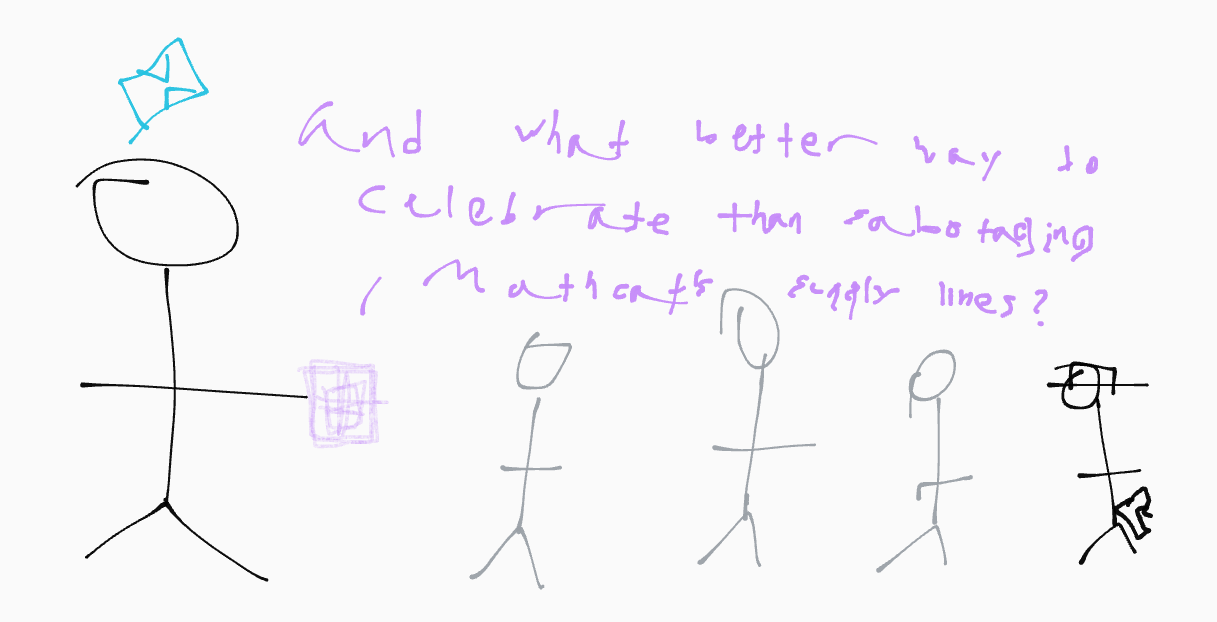 And what better way to
celebrate than sabotaging
Mathcat's supply lines?